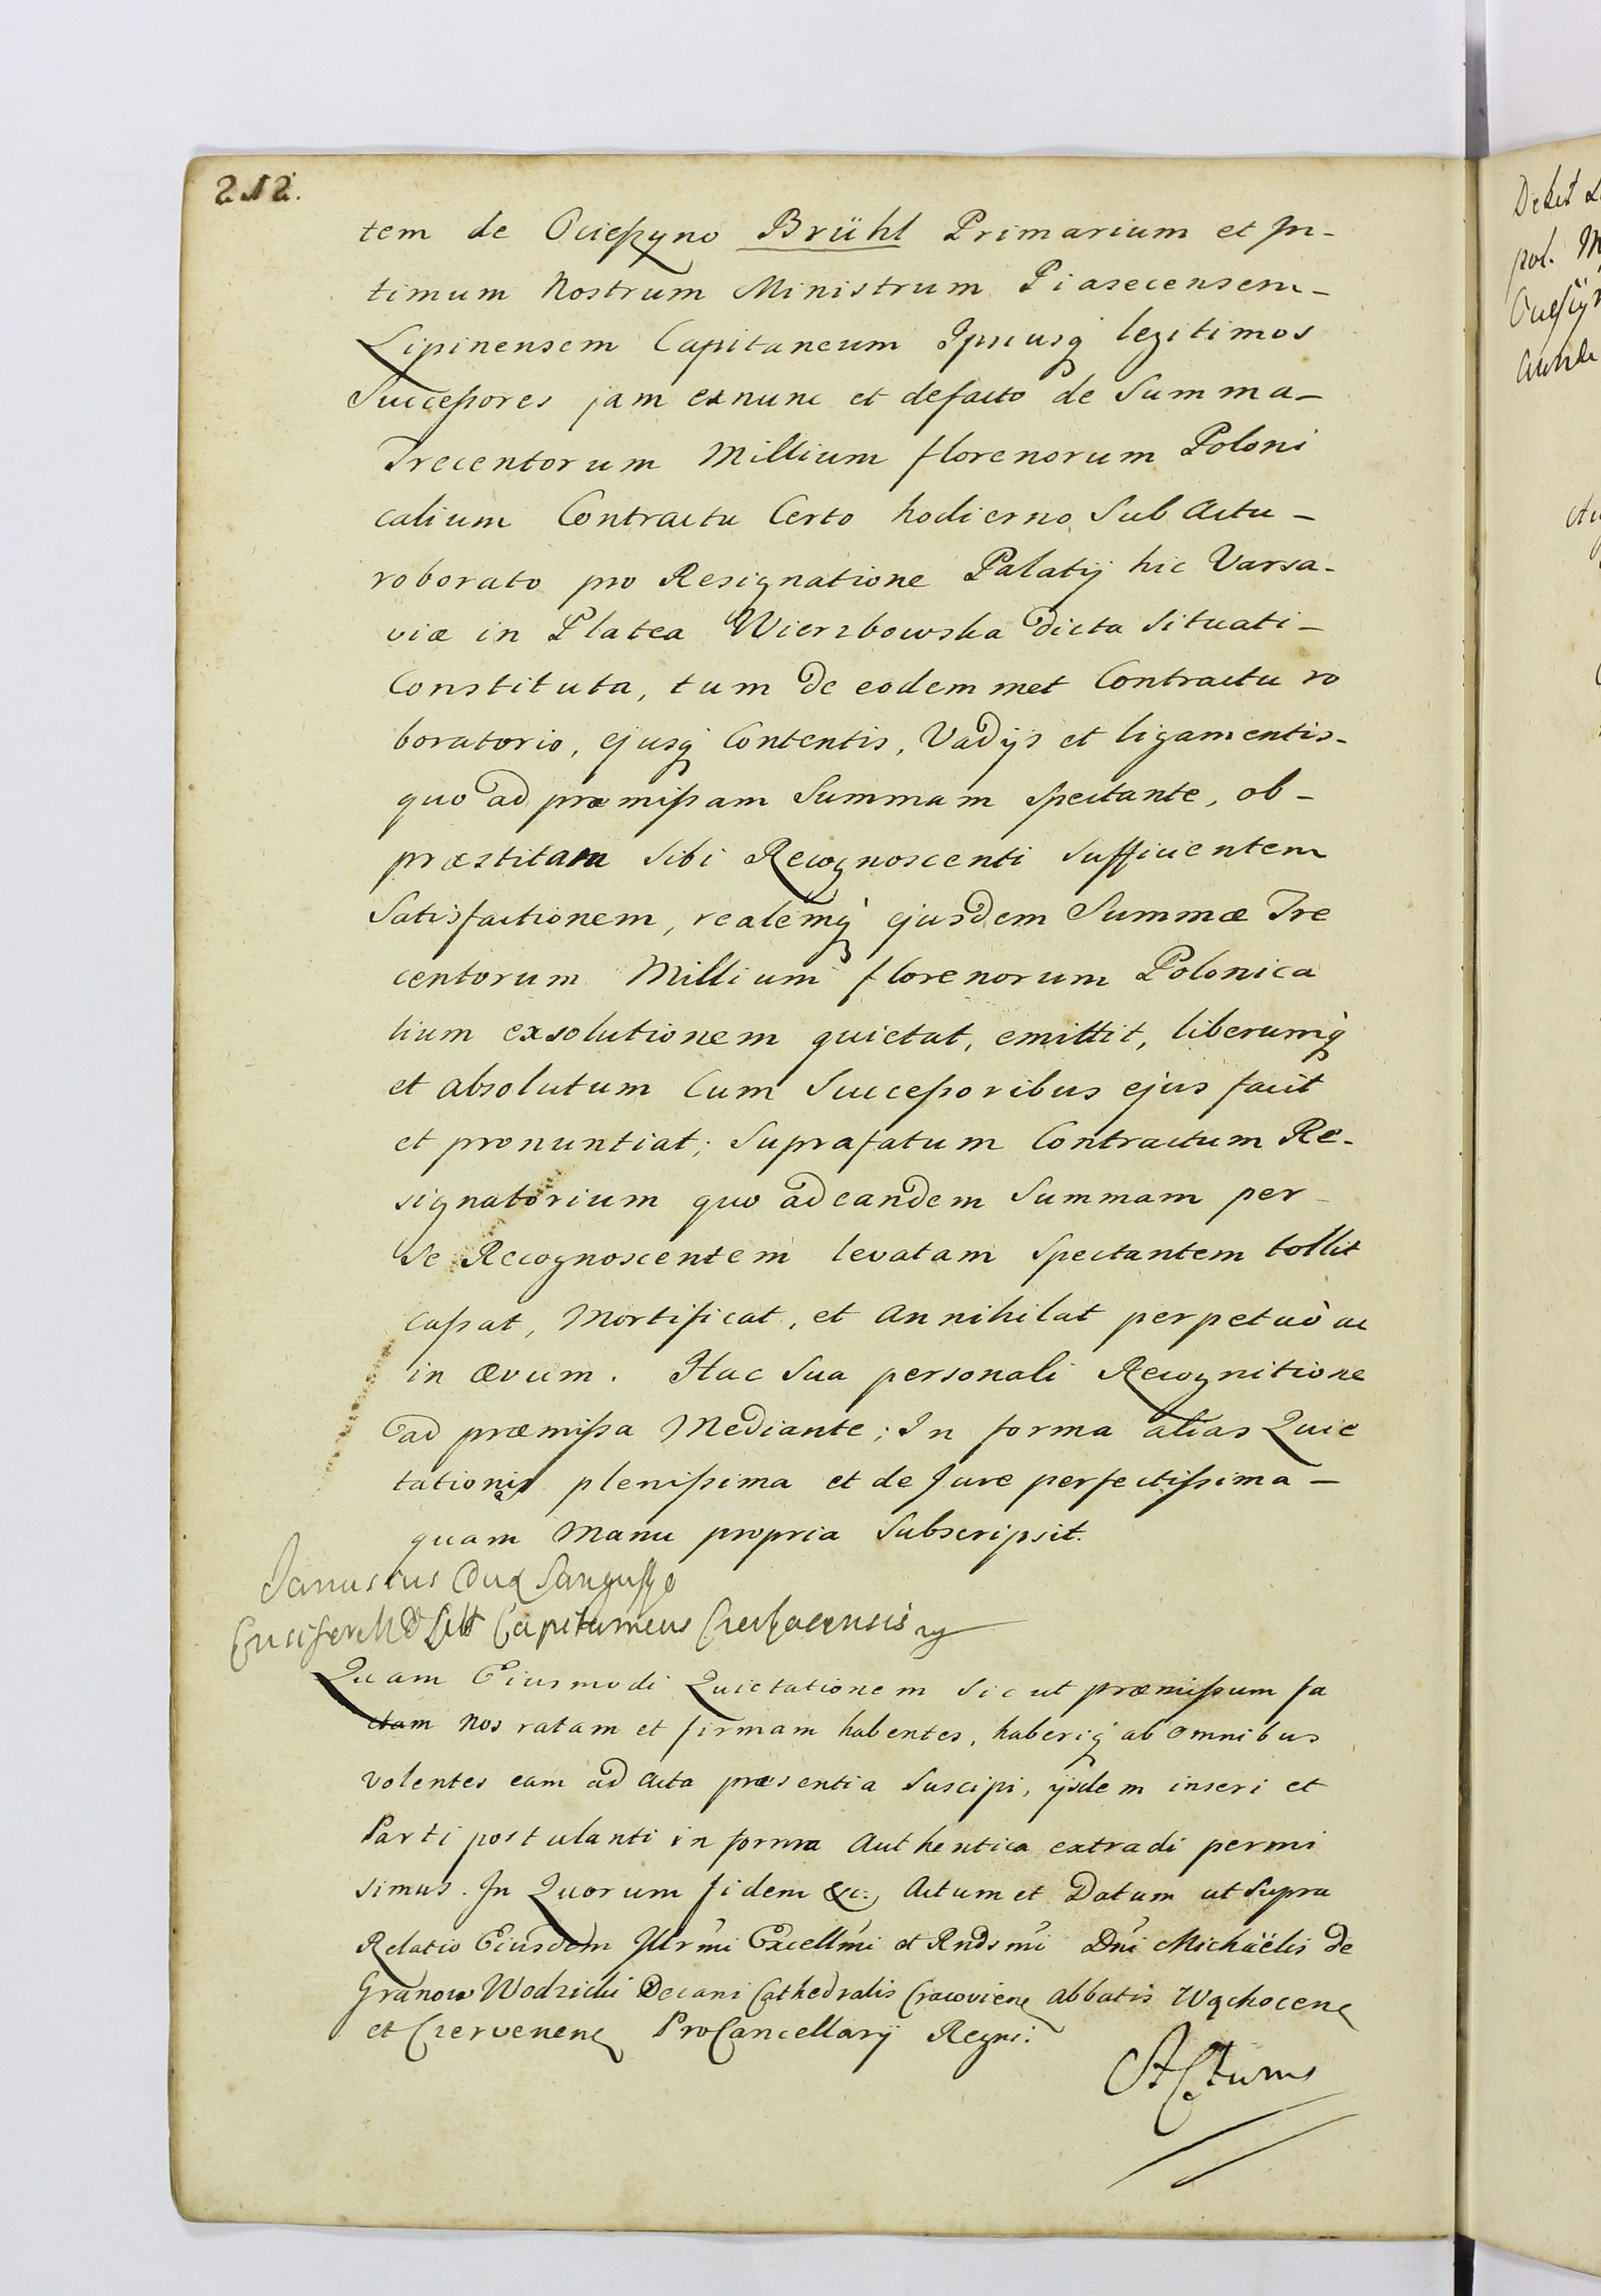 212.
tem de Ocieszyno Brühl Primarium et In-
timum Nostrum Ministrum Piasecensem-
Lipinensem Capitaneum Ipsiusq legitimos
Successores jam exnunc et defacto de Summa-
Trecentorum Millium florenorum Poloni
calium Contractu Certo hodierno Sub Actu-
roborato pro Resignatione Palatij hic Varsa-
viæ in Platea Wierzbowska dicta Situati-
Constituta, tum de eodem met Contractu ro
boratorio, ejusq Contentis, Vadijs et ligamentis-
quo ad præmissam Summam spectante, ob-
præstitam Sibi Recognoscenti Sufficientem
Satisfactionem, realemq ejusdem Summæ Tre
centorum Millium florenorum Polonica
lium exsolutionem quietat, emittit, liberumq
et absolutum Cum Successoribus ejus facit
et pronuntiat; Suprafatum Contractum Re-
signatorium quo adeandem Summam per-
Se Recognoscentem levatam Spectantem tollit
Cassat, Mortificat, et Annihilat perpetuò ac
in ævum. Hac Sua personali Recognitione
ad præmissa Mediante; In forma alias Quie
tationis plenissima et de Jure perfectissima-
quam Manu propria Subscripsit.
Janusius Dux Sangussko
Ensifer M D Litt Capitaneus
Quam Eiusmodi Quietationem Sic ut præmissum fa
ctam Nos ratam et firmam habentes, haberiq ab omnibus
Volentes eam ad Acta præsentia Suscipi, ijsdem inseri et
Parti postulanti in forma Authentica extradi permi
simus. In Quorum fidem &c: Actum et Datum ut Supra
Relatio Eiusdem Illrmi Excellmi et Rndsmi Dni Michaëlis de
Granow Wodzicki Decani Cathedralis Cracovien Abbatis Wąchocen
et Czervenen ProCancellarij Regni:
Actum
Dict
pol. M